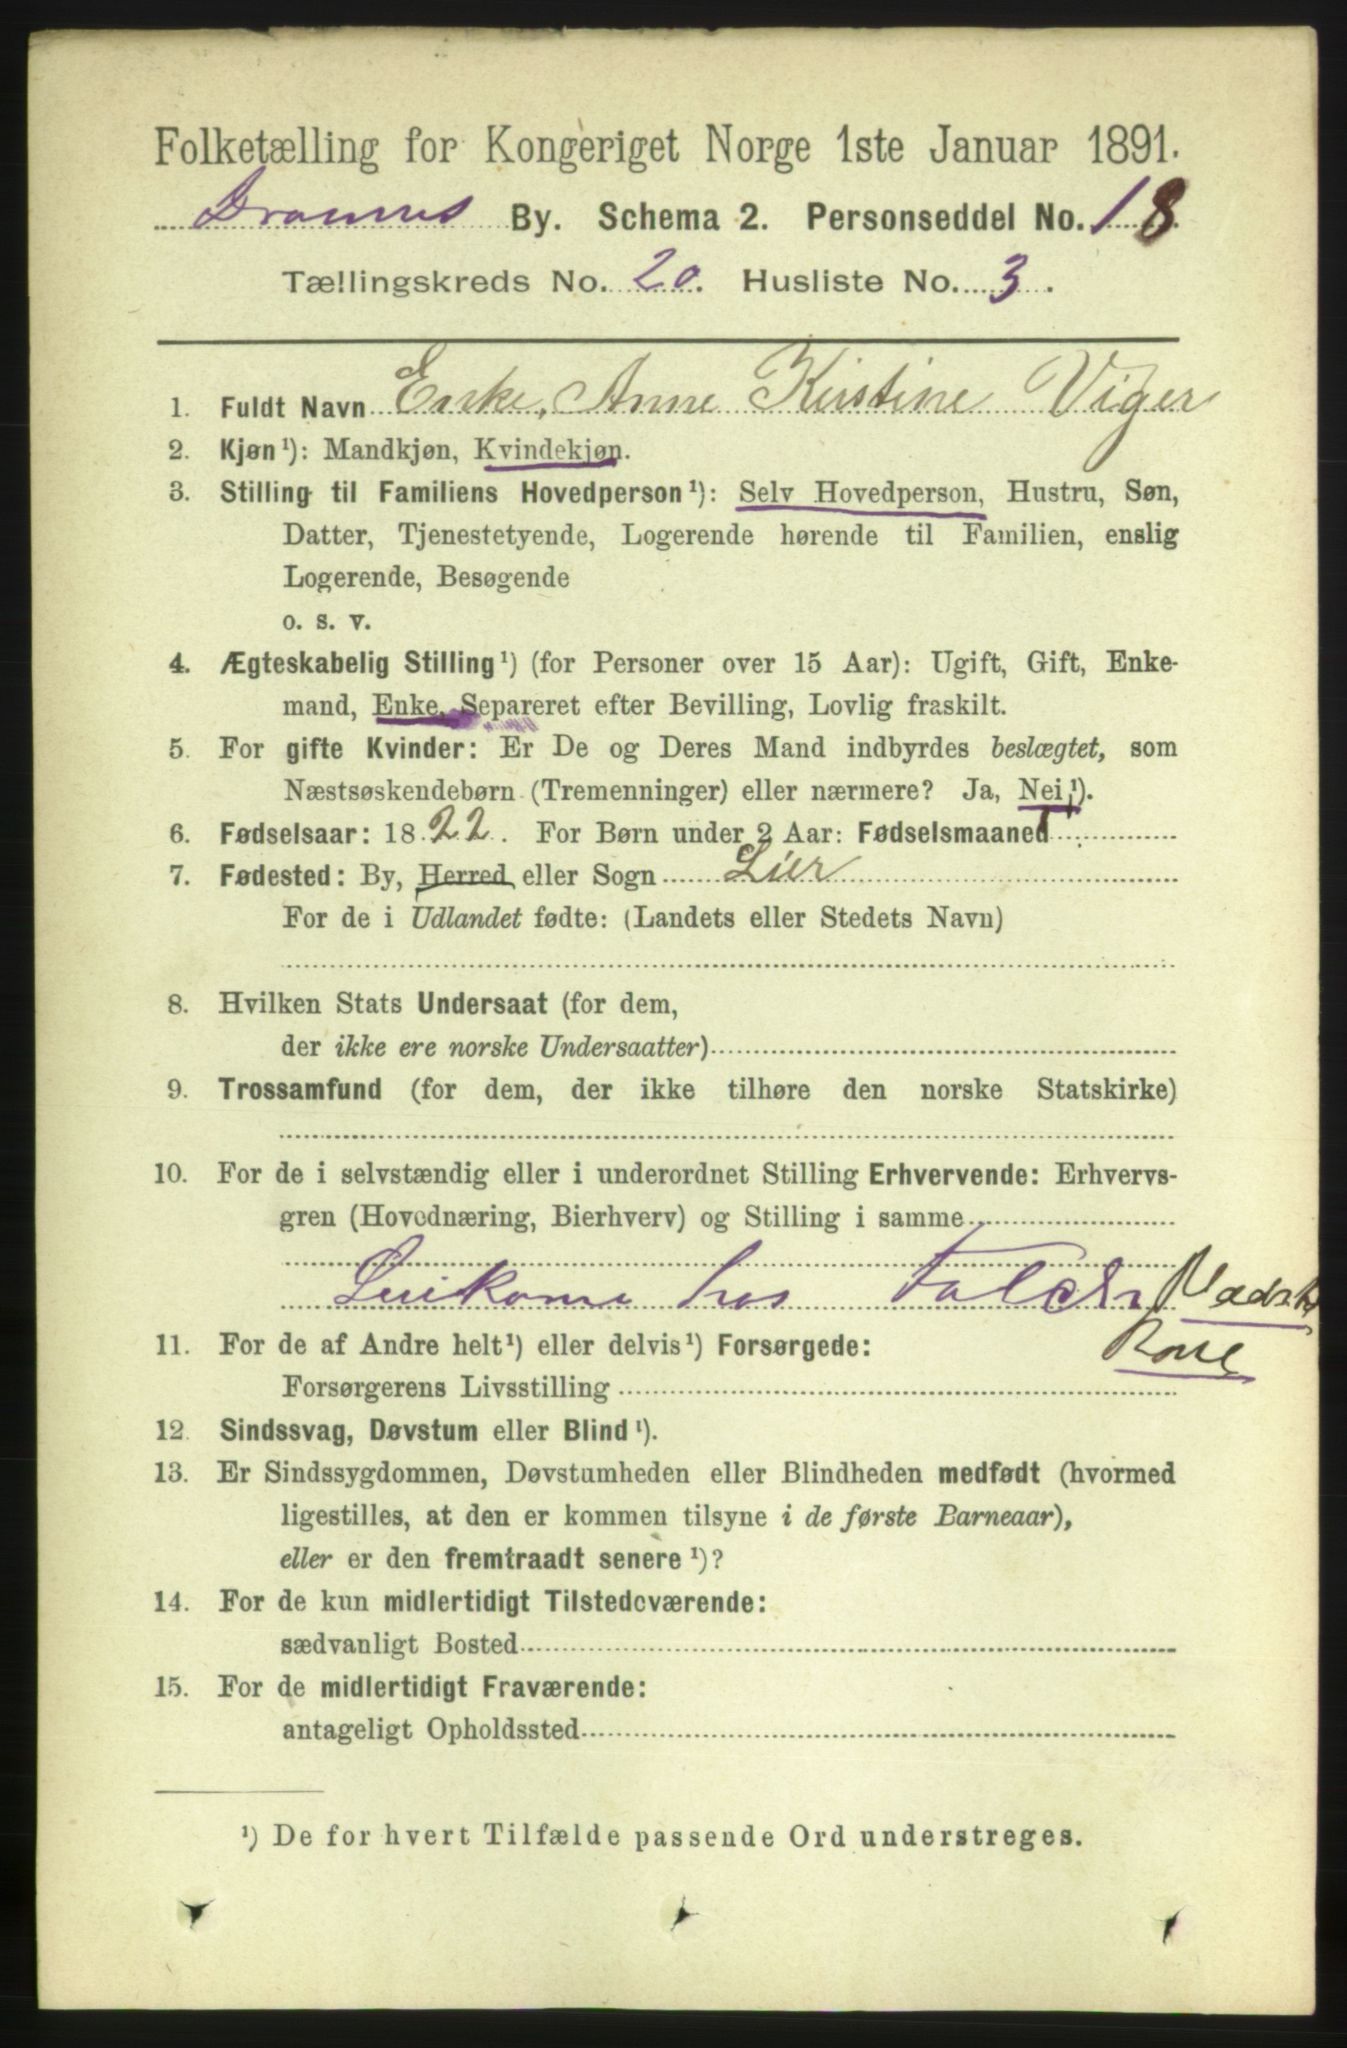 Folketælling for Kongeriget Norge 1ste Januar 1891.
By. Schema 2. Personseddel No. 18.
Tællingskreds No. 20. Husliste No. 3.
1. Fuldt Navn Enke, Anne Kirstine Viger
2. Kjøn¹): Mandkjøn, Kvindekjøn.
3. Stilling til Familiens Hovedperson¹): Selv Hovedperson, Hustru, Søn,
Datter, Tjenestetyende, Logerende hørende til Familien, enslig
Logerende, Besøgende
o. s. v.
4. Ægteskabelig Stilling¹) (for Personer over 15 Aar): Ugift, Gift, Enke-
mand, Enke, Separeret efter Bevilling, Lovlig fraskilt.
5. For gifte Kvinder: Er De og Deres Mand indbyrdes beslægtet, som
Næstsøskendebørn (Tremenninger) eller nærmere? Ja, Nei,¹).
6. Fødselsaar: 1822. For Børn under 2 Aar: Fødselsmaaned
7. Fødested: By, Herred eller Sogn Lier
For de i Udlandet fødte: (Landets eller Stedets Navn)
8. Hvilken Stats Undersaat (for dem,
der ikke ere norske Undersaatter)
9. Trossamfund (for dem, der ikke tilhøre den norske Statskirke)
10. For de i selvstændig eller i underordnet Stilling Erhvervende: Erhvervs-
gren (Hovednæring, Bierhverv) og Stilling i samme
hos
11. For de af Andre helt¹) eller delvis¹) Forsørgede:
Forsørgerens Livsstilling
12. Sindssvag, Døvstum eller Blind¹).
13. Er Sindssygdommen, Døvstumheden eller Blindheden medfødt (hvormed
ligestilles, at den er kommen tilsyne i de første Barneaar),
eller er den fremtraadt senere¹)?
14. For de kun midlertidigt Tilstedeværende:
sædvanligt Bosted
15. For de midlertidigt Fraværende:
antageligt Opholdssted
¹) De for hvert Tilfælde passende Ord understreges.